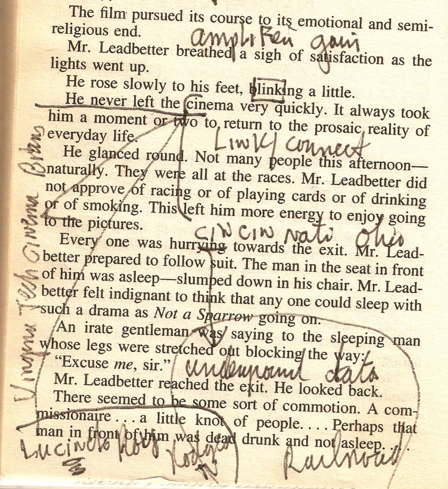 The film pursued its course to its emotional and semi-
religious end.
amplifier gain
Mr. Leadbetter breathed a sigh of satisfaction as the
lights went up.
He rose slowly to his feet, blinking a little.
He never left the cinema very quickly. It always took
him a moment or two to return to the prosaic reality of
everyday life.
Link/connect
He glanced round. Not many people this afternoon—
naturally. They were all at the races. Mr. Leadbetter did
not approve of racing or of playing cards or of drinking
or of smoking. This left him more energy to enjoy going
to the pictures.
Cincinnati Ohio
Every one was hurrying towards the exit. Mr. Lead-
better prepared to follow suit. The man in the seat in front
of him was asleep—slumped down in his chair. Mr. Lead-
better felt indignant to think that any one could sleep with
such a drama as Not a Sparrow going on.
An irate gentleman was saying to the sleeping man
whose legs were stretched out blocking the way:
"Excuse me, sir."
underground data
Mr. Leadbetter reached the exit. He looked back.
There seemed to be some sort of commotion. A com-
missionaire . . . a little knot of people. . . . Perhaps that
man in front of him was dead drunk and not asleep. . . .
Lucinda Roy
Railroad
Virginia Tech Cinema